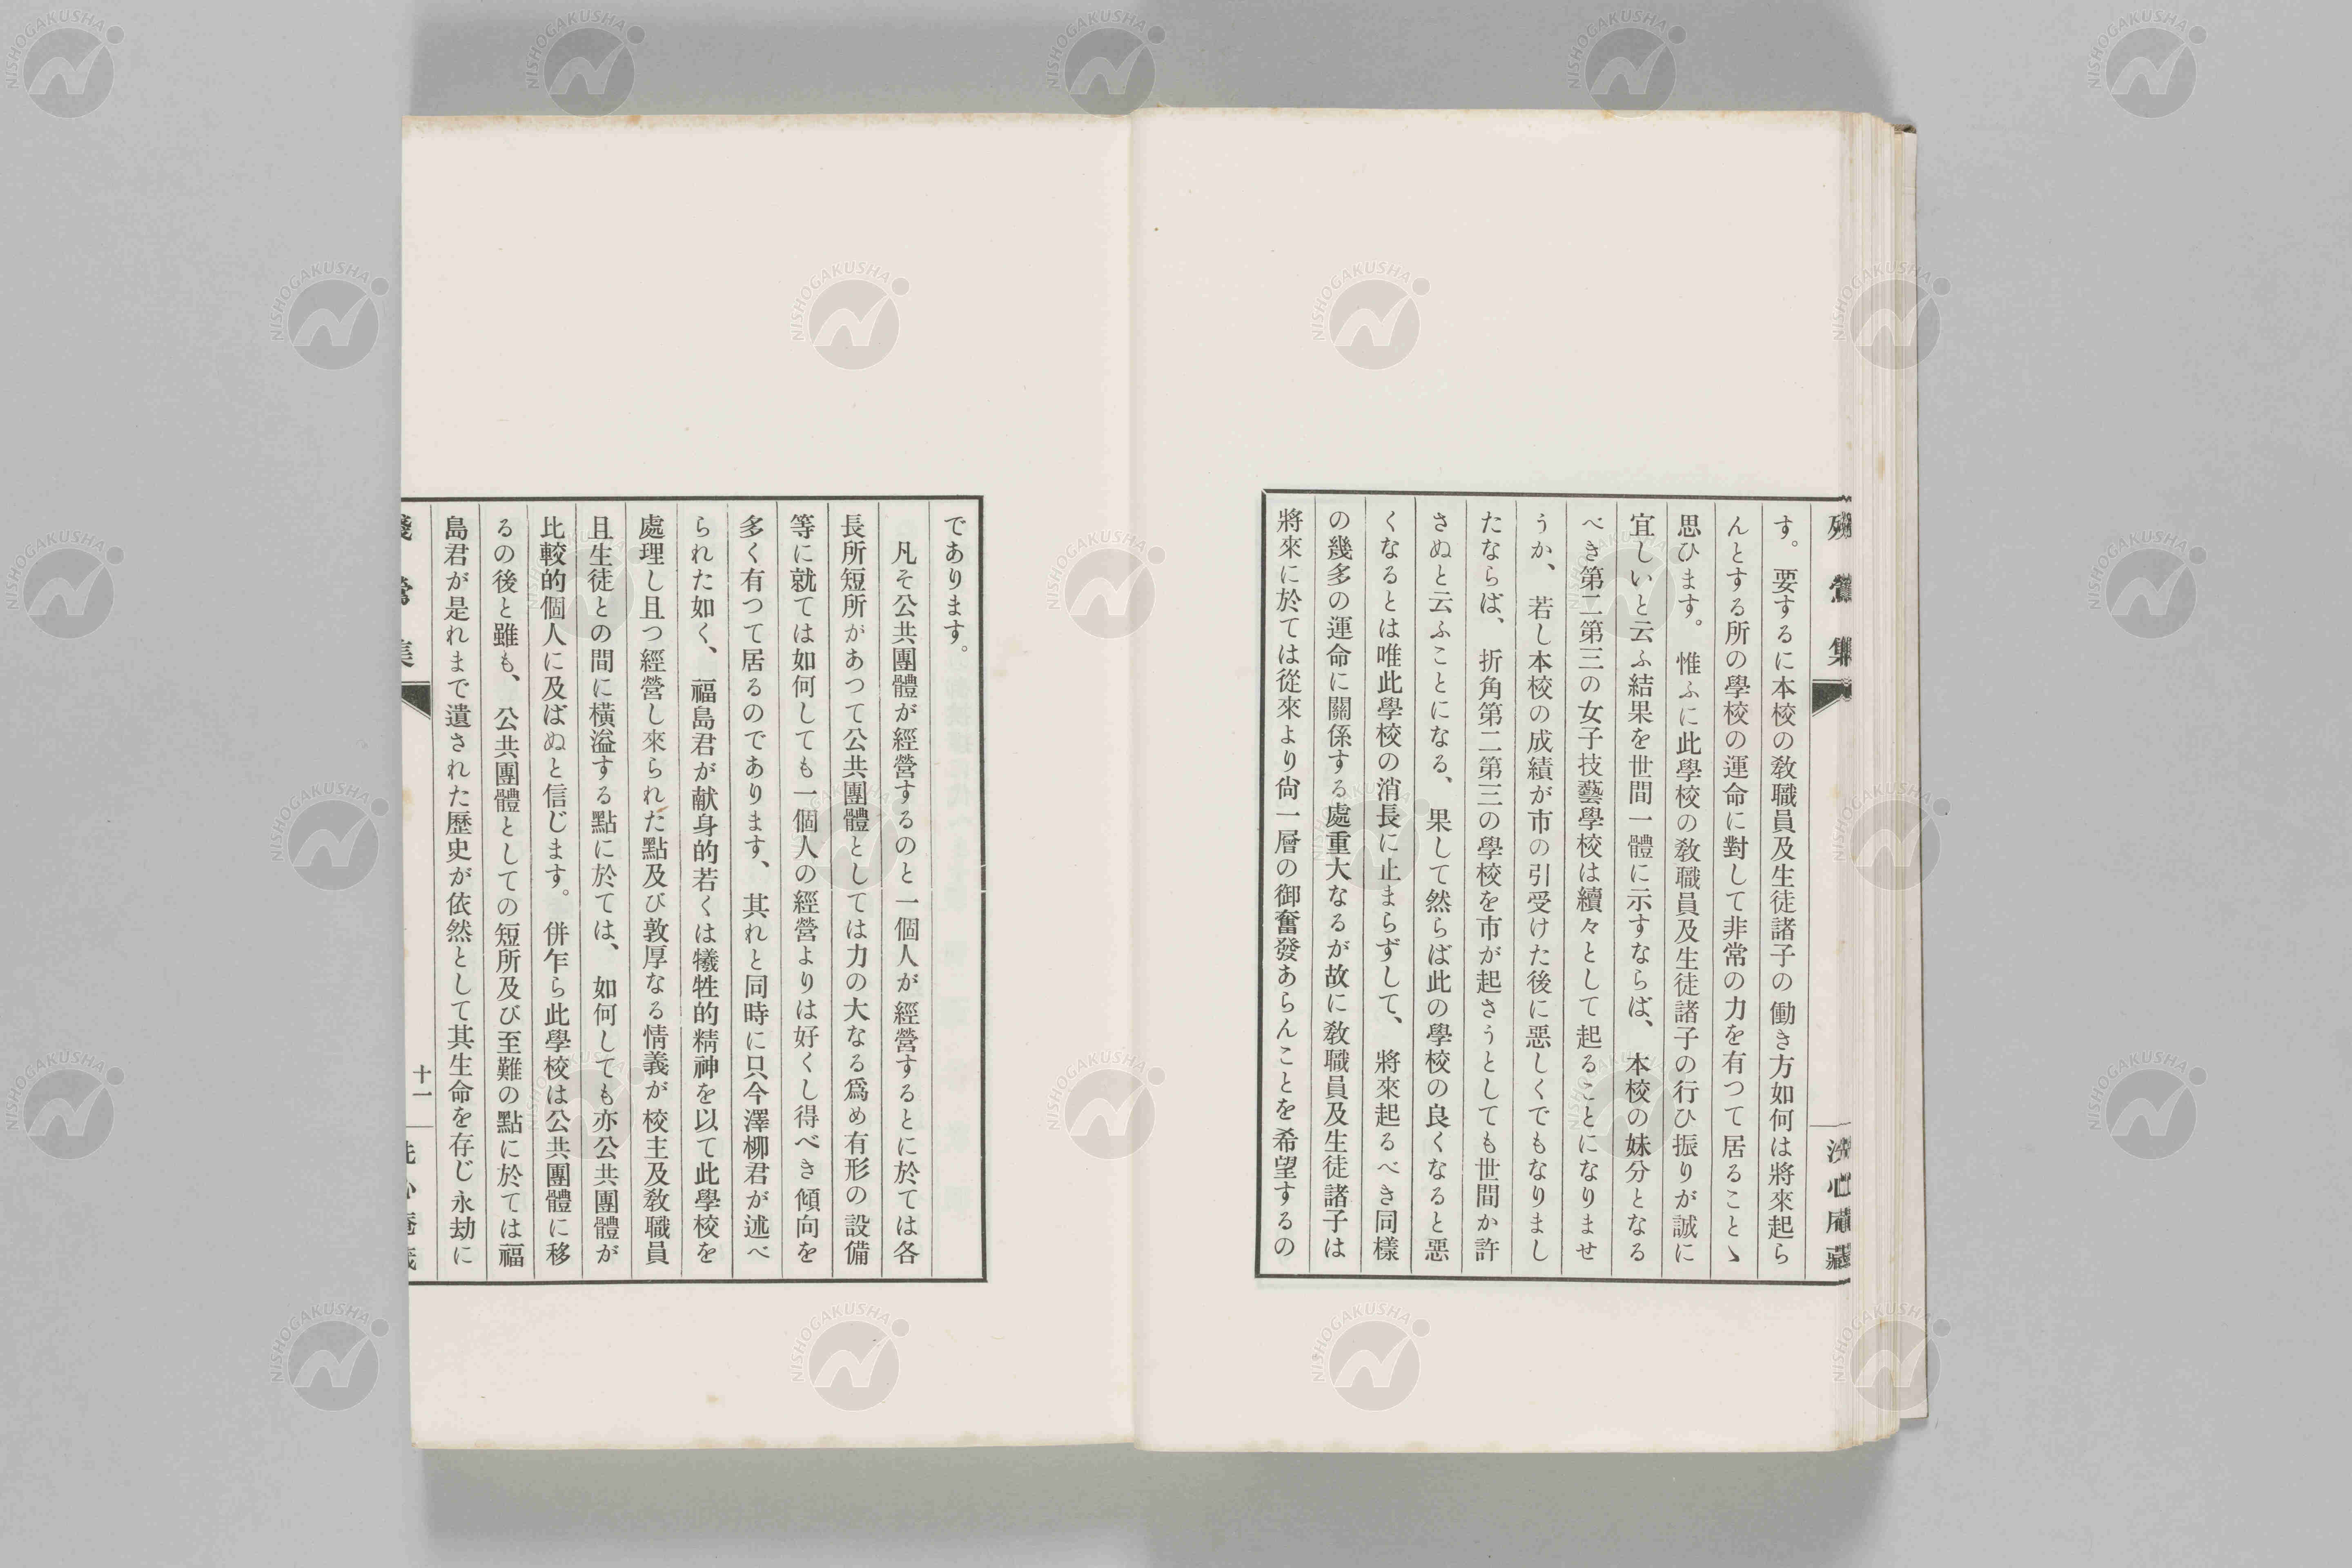 す。要するに本校の教職員及生徒諸子の働き方如何は將來起ら
んとする所の學校の運命に對して非常の力を有つて居ることゝ
思ひます。惟ふに此學校の教職員及生徒諸子の行ひ振りが誠に
宜しいと云ふ結果を世間一體に示すならば、本校の妹分となる
べき第二第三の女子技藝學校は續々として起ることになりませ
うか、若し本校の成績が市の引受けた後に惡しくでもなりまし
たならば、折角第二第三の學校を市が起さうとしても世間か許
さぬと云ふことになる、果して然らば此の學校の良くなると惡
くなるとは唯此學校の消長に止まらずして、將來起るべき同樣
の幾多の運命に關係する處重大なるが故に教職員及生徒諸子は
將來に於ては從來より尙一層の御奮發あらんことを希望するの
であります。
凡そ公共團體が經營するのと一個人が經營するとに於ては各
長所短所があつて公共團體としては力の大なる爲め有形の設備
等に就ては如何しても一個人の經營よりは好くし得べき傾向を
多く有つて居るのであります、其れと同時に只今澤柳君が述べ
られた如く、福島君が献身的若くは犧牲的精神を以て此學校を
處理し且つ經營し來られた點及び敦厚なる情義が校主及敎職員
且生徒との間に橫溢する點に於ては、如何しても亦公共團體が
比較的個人に及ばぬと信じます。併乍ら此學校は公共團體に移
るの後と雖も、公共團體としての短所及び至難の點に於ては福
島君が是れまで遺された歷史が依然として其生命を存じ永劫に
十一
NISHOGAKUSHA